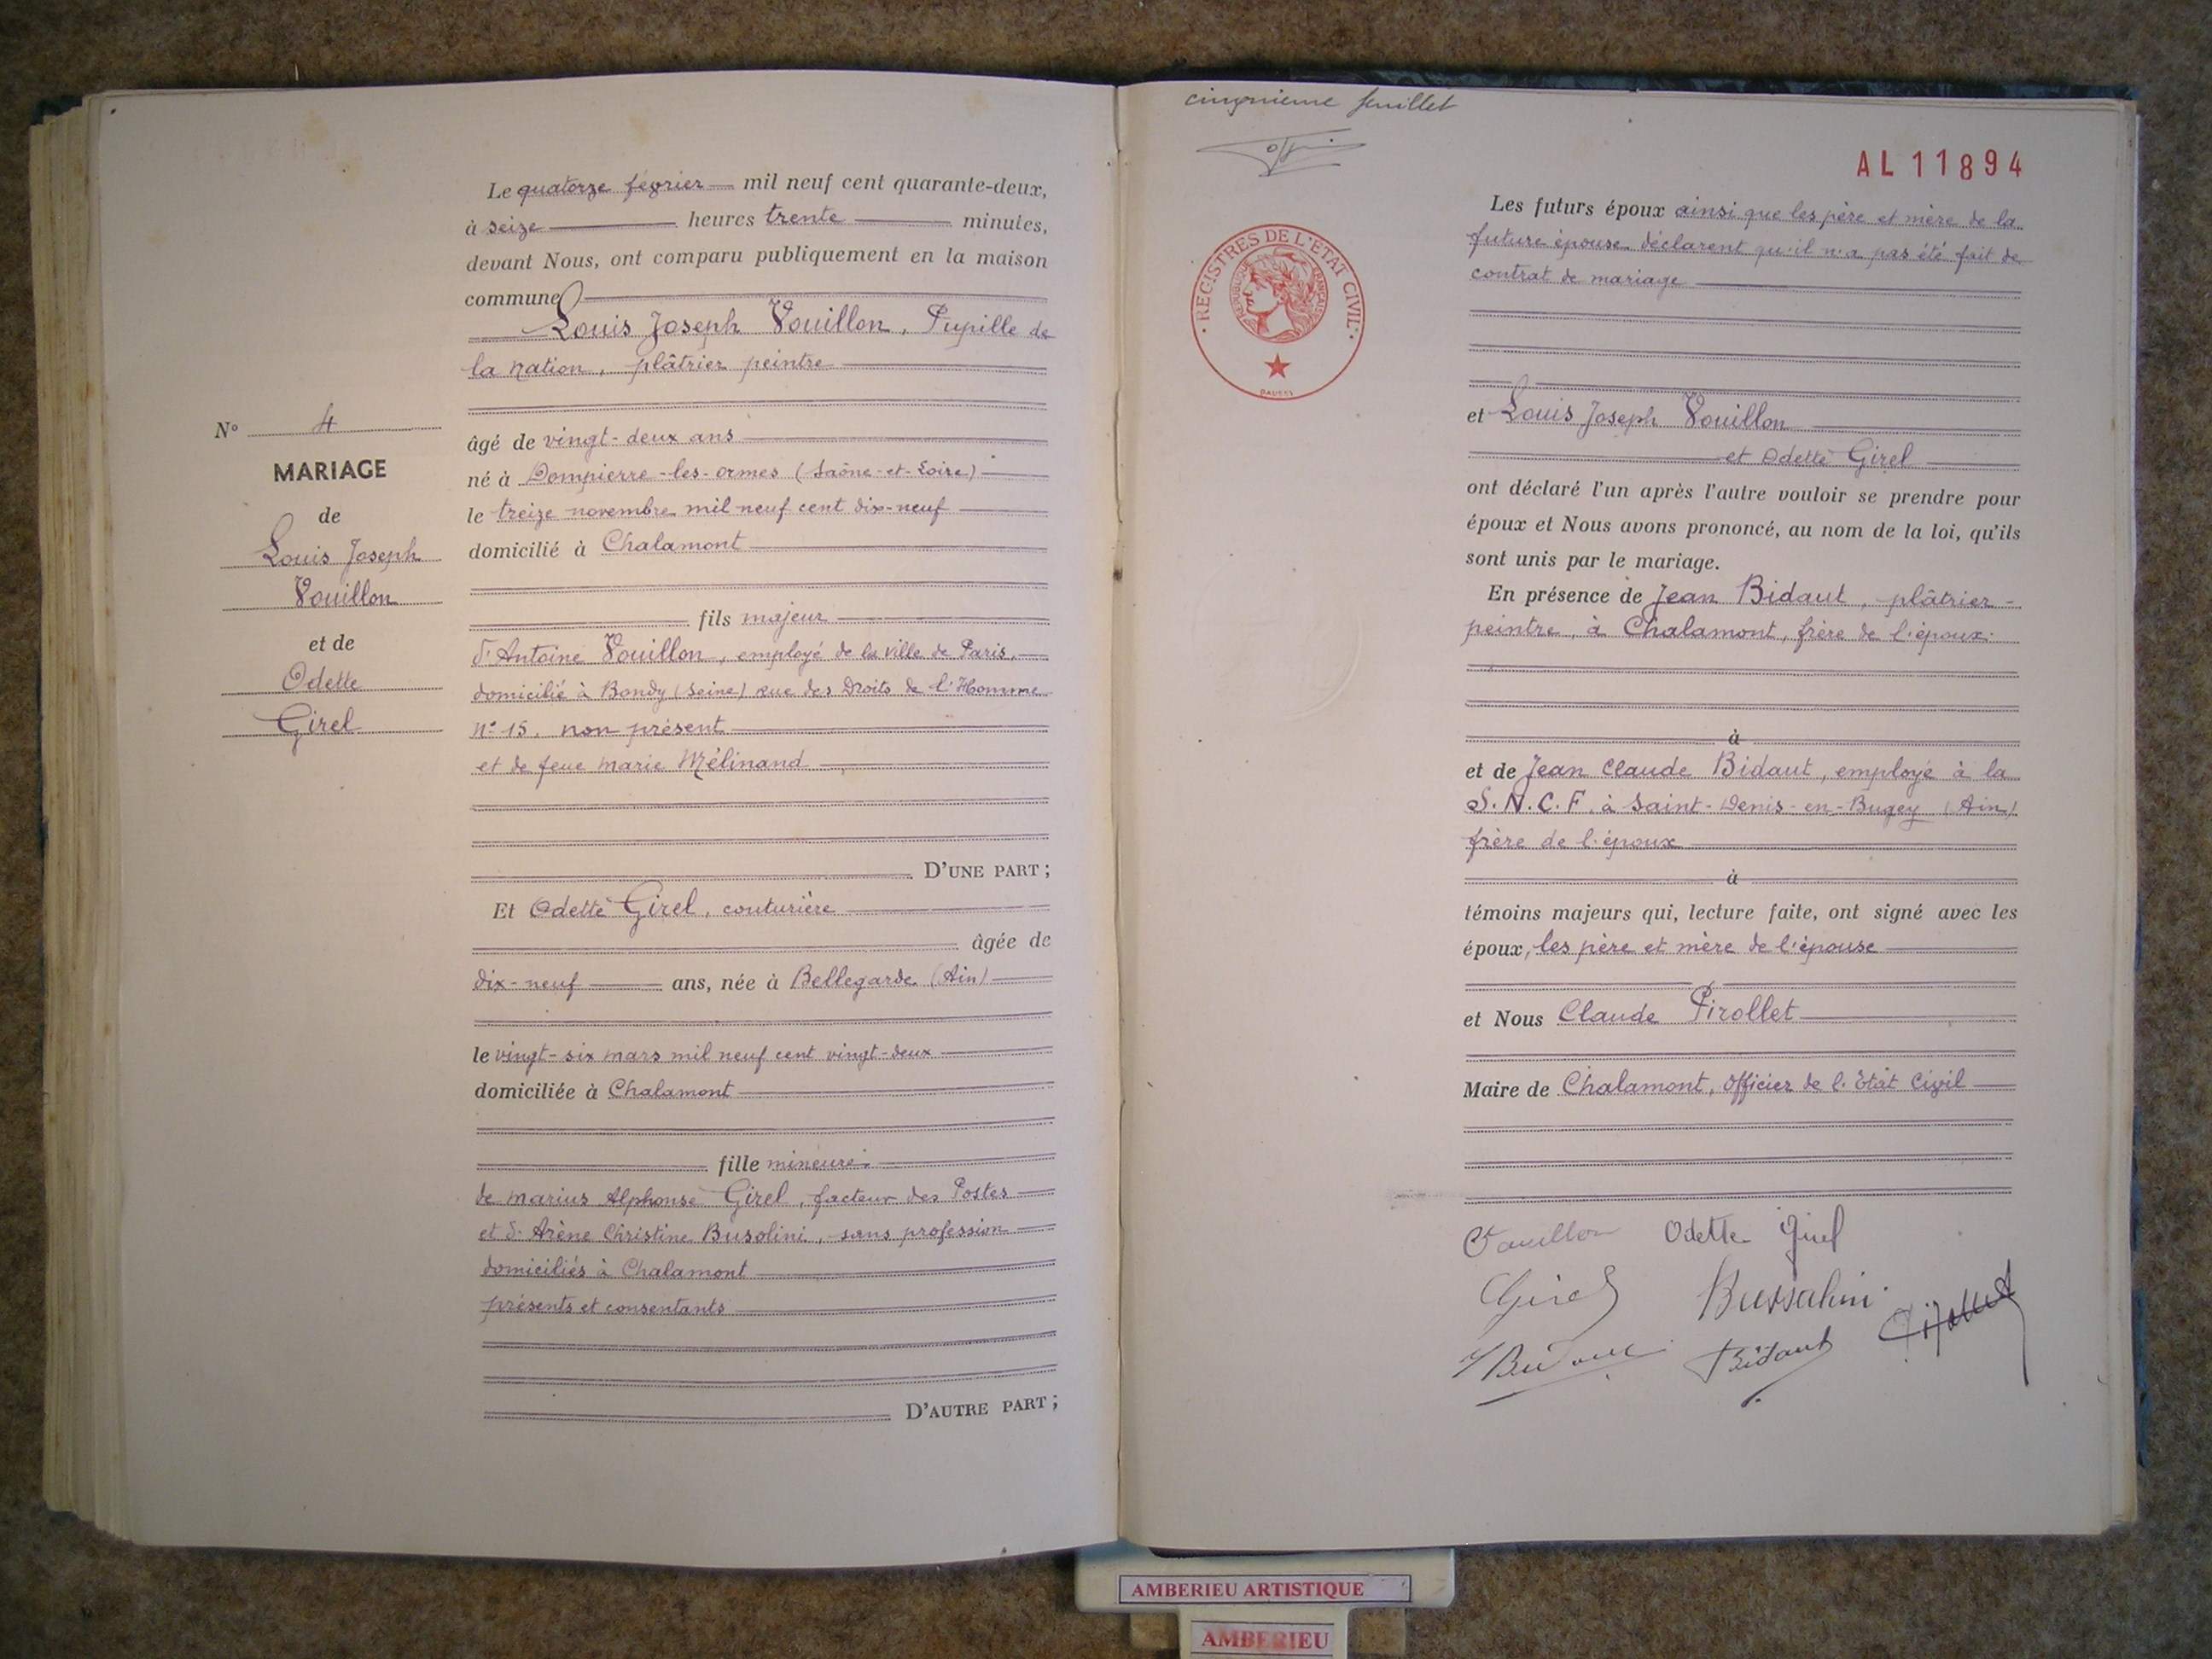 Le quatorze février mil neuf cent quarante-deux,
à seize heures trente minutes,
devant Nous, ont comparu publiquement en la maison
commune
Louis Joseph Vouillon, Pupille de
la Nation, plâtrier peintre
N° 4
MARIAGE
de
Louis Joseph
Vouillon
et de
Odette
Girel
âgé de vingt-deux ans
né à Dompierre-les-ormes (Saône-et-Loire)
le treize novembre mil neuf cent dix-neuf
domicilié à Chalamont
fils majeur
d'Antoine Vouillon, employé de la ville de Paris,
domicilié à Bondy (Seine) rue des Droits de l'Homme
N° 15, non présent
et de feue Marie Mélinand
D'UNE PART ;
Et Odette Girel, couturière
âgée de
dix-neuf ans, née à Bellegarde (Ain)
le vingt-six mars mil neuf cent vingt-deux
domiciliée à Chalamont
fille mineure
de Marius Alphonse Girel, facteur des Postes
et d'Arène Christine Busolini, sans profession
domiciliés à Chalamont
présents et consentants
D'AUTRE PART ;
cinquième feuillet
REGISTRES DE L'ETAT CIVIL
REPUBLIQUE FRANÇAISE
AL 11894
Les futurs époux ainsi que les père et mère de la
future épouse déclarent qu'il n'a pas été fait de
contrat de mariage
et Louis Joseph Vouillon
et Odette Girel
ont déclaré l'un après l'autre vouloir se prendre pour
époux et Nous avons prononcé, au nom de la loi, qu'ils
sont unis par le mariage.
En présence de Jean Bidaut, plâtrier-
peintre, à Chalamont, frère de l'époux
à
et de Jean Claude Bidaut, employé à la
S.N.C.F. à Saint-Denis-en-Bugey (Ain)
frère de l'époux
à
témoins majeurs qui, lecture faite, ont signé avec les
époux, les père et mère de l'épouse
et Nous Claude Pirollet
Maire de Chalamont, officier de l'Etat Civil
Vouillon Odette Girel
Girel Bussolini
J Bidaut Bidaut
AMBERIEU ARTISTIQUE
AMBERIEU